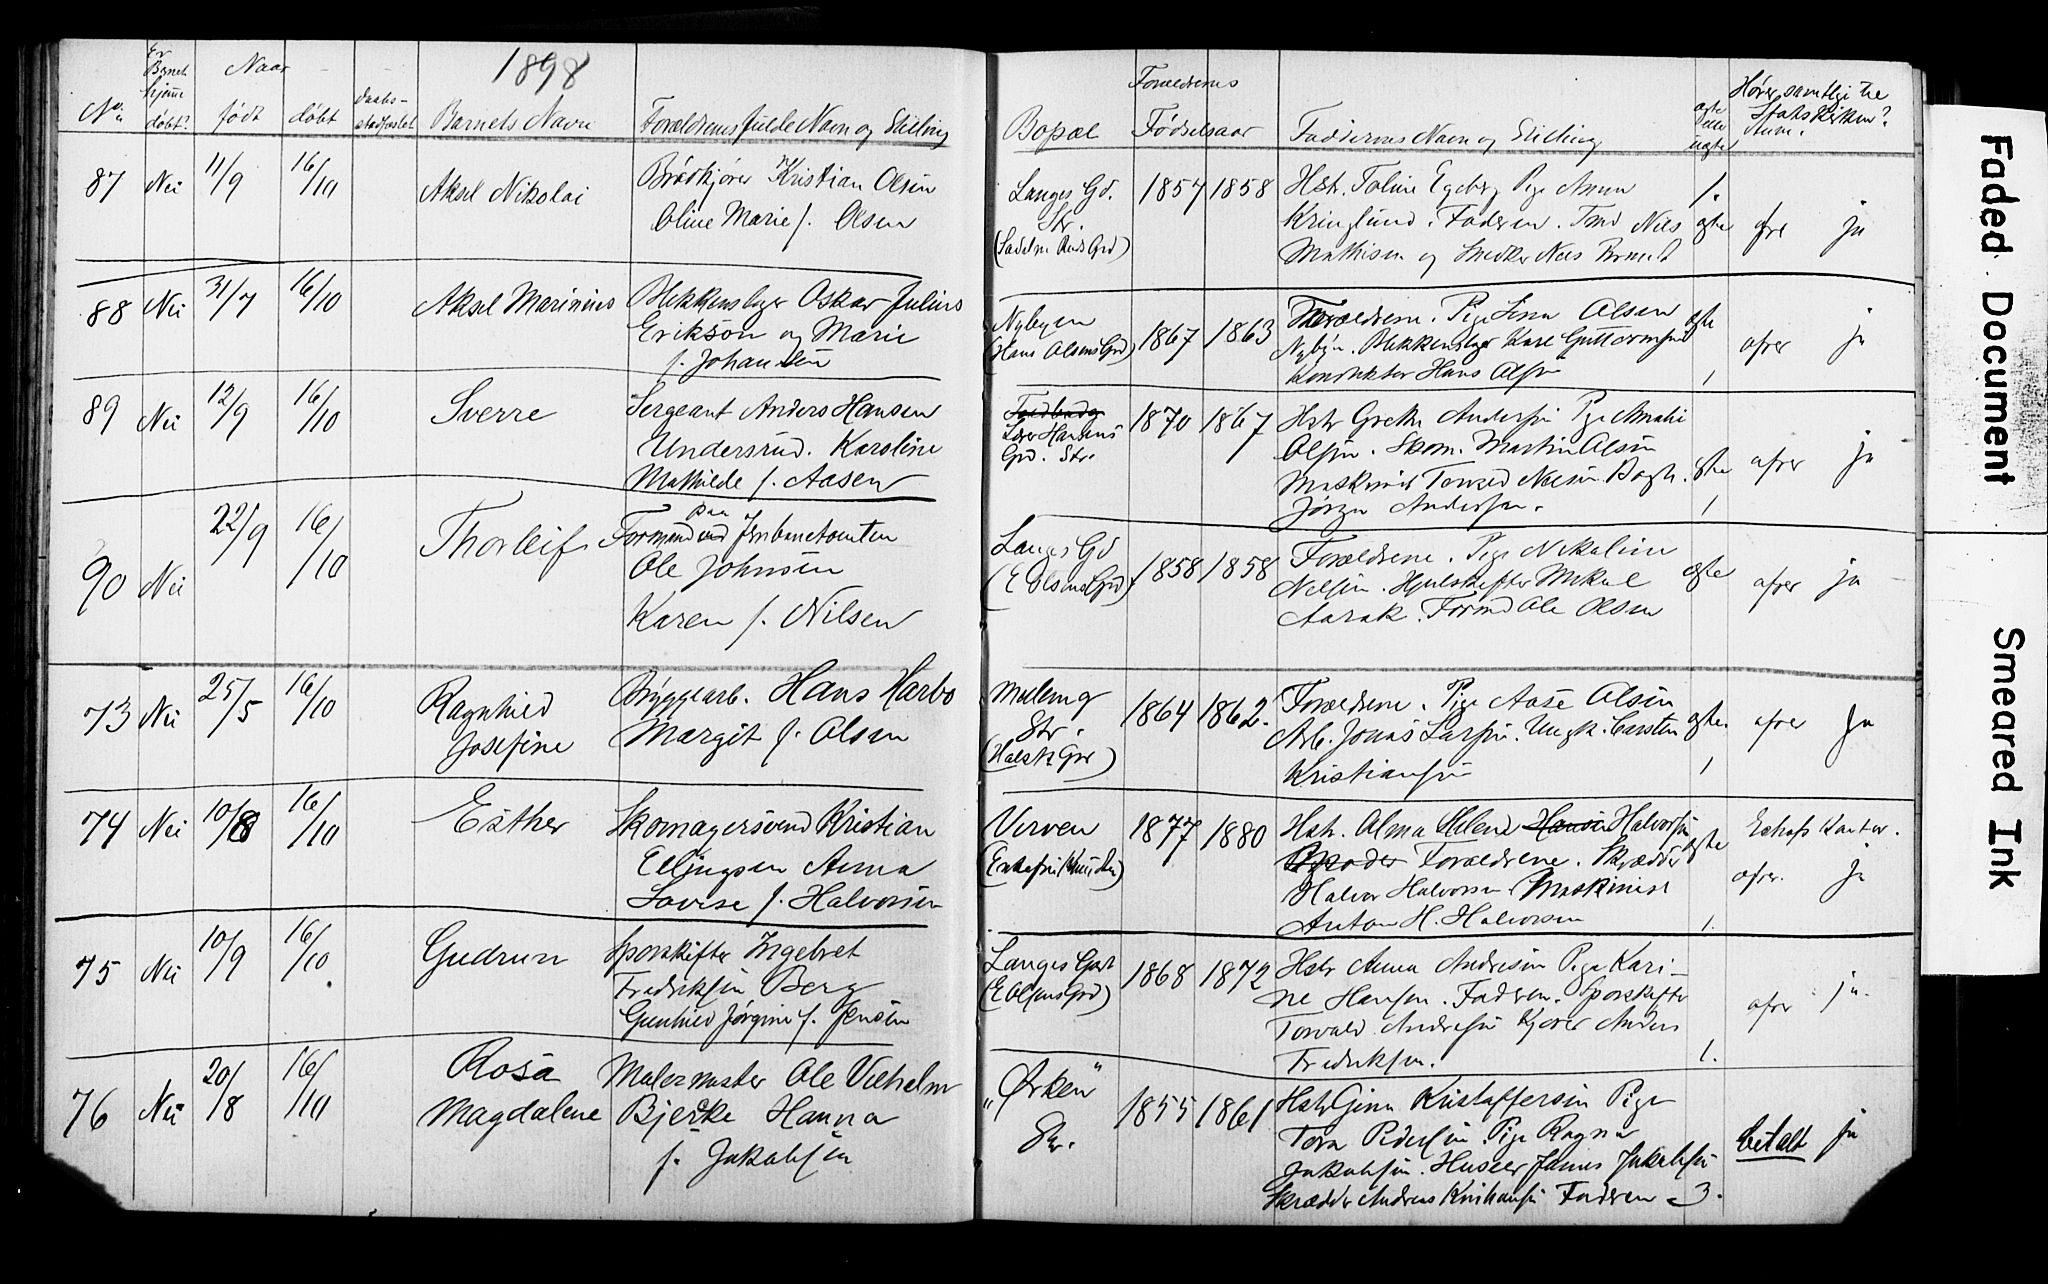 1898
No. Er Barnet hjemme døbt? Naar født døbt Daabs- stadfæstet Barnets Navn Forældrenes fulde Navn og Stilling
Bopæl Forældrenes Fødselsaar Faddernes Navn og Stilling ægte eller uægte Hører samtlige til Statskirken? Anm.
87 Nei 11/9 16/10 Aksel Nikolai
Brødkjører Kristian Olsen
Oline Marie f. Olsen
Langes Gd.
Str.
1857 1858
Hstr. Toline Egeberg Pige Anna
Kringlund. Faderen. Tmd Nils
Mathisen og Snedker Nils
1.
ægte
ja
88 Nei 31/7 16/10 Aksel Marinius
Blikkenslager Oskar Julius
Erikson og Marie
f. Johansen
Nybyen
(Hans Olsens Grd)
1867 1863
Forældrene. Pige Lina Olsen
Nybyen. Blikkenslager Karl Guttormsen
Konduktør Hans Olsen
ægte
1
afrer
ja
89 Nei 12/9 16/10 Sverre
Sergeant Anders Hansen
Undersrud. Karoline
Mathilde f. Aasen
Lars Hansens
Grd. Str.
1870 1867
Hstr Grethe Andersen Pige Amalie
Olsen. Skom. Martin Olsen
Maskinist Torvald Nilsen. Bagm.
Jørgen Andersen.
ægte
1
afrer
ja
90 Nei 22/9 16/10 Thorleif
Formand ved paa Jernbanetomten
Ole Johnsen
Karen f. Nilsen
Langes Gd
(E Olsens Grd)
1858 1858
Forældrene. Pige Nikoline
Nilsen. Hjulskifter Mikal
Aarak. Formd Ole Olsen
ægte
afrer
ja
73 Nei 25/5 16/10 Ragnhild
Josefine
Bryggearb. Hans Harbo
Margit f. Olsen
Str.
1864 1862.
Forældrene. Pige Aase Olsen
Arb. Jonas Larsen. Ungk. Carsten
Kristiansen
ægte.
1
afrer
ja
74 Nei 10/8 16/10 Esther
Skomagersvend Kristian
Ellingsen Anna
Lovise f. Halvorsen
Verven
(Enkefru Knudsen)
1877 1880
Hstr. Alma Helene Hansen Halvorsen
Forældrene. Skrædder
Halvor Halvorsen Maskinist
Anton H. Halvorsen
ægte
1.
afrer.
ja
75 Nei 10/9 16/10. Gudrun
Sporskifter Ingebret
Fredriksen Berg
Gunhild Jørgine f. Jensen
Langes Gart
(E Olsens Grd)
1868 1872
Hstr Anna Andresen Pige Kari-
ne Hansen. Faderen. Sporskifter
Torvald Andresen Kjører Anders
Fredriksen.
1.
afrer
ja.
76 Nei 20/8 16/10 Rosa
Magdalene
Malermester Ole Vilhelm
Bjerke Hanna
f. Jakobsen
„Ørken"
Str.
1855 1861
Hstr Gina Kristoffersen Pige
Tora Pedersen Pige Ragna
Jakobsen. Huseier James Jakobsen
Skrædder Andreas Faderen
3.
betalt
ja
Faded Document
Smeared Ink